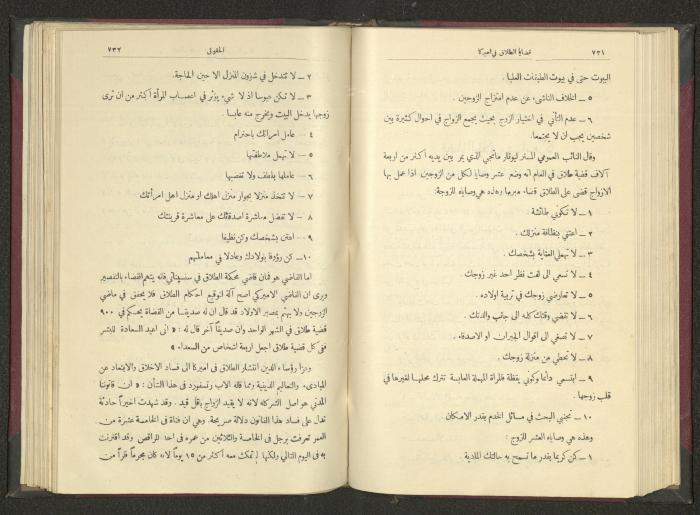 ٧٣١
قضايا الطلاق في اميركا
البيوت حتى في بيوت الطبقات العليا .
٥ ــ الخلاف الناشىء عن عدم امتزاج الزوجين .
٦ ــ عدم التأني في اختيار الزوج بحيث يجمع الزواج في احوال كثيرة بين
شخصين يجب ان لا يجتمعا .
وقال النائب العمومي المستر ليوثار مانجي الذي يمر بين يديه أكثر من اربعة
آلاف قضية طلاق في العام انه وضع عشر وصايا لكل من الزوجين اذا عمل بها
الازواج قضى على الطلاق قضاء مبرما وهذه هي وصاياه للزوجة :
١ ــ لا تكوني طائشة .
٢ ــ اعتني بنظافة منزلك .
٣ ــ لا تهملي العناية بشخصك .
٤ ــ لا تسعي الى لفت نظر احد غير زوجك .
٥ ــ لا تعارضي زوجك في تربية اولاده .
٦ ــ لا تقضي وقتك كله الى جانب والدتك .
٧ ــ لا تصغي الى اقوال الجيران او الاصدقاء .
٨ ــ لا تحطي من منزلة زوجك .
٩ ــ ابتسمي دائما وكوني يقظة فالمرأة المهملة العابسة تترك محلها لغيرها في
قلب زوجها .
١٠ ــ تجنبي البحث في مسائل الخدم بقدر الامكان .
وهذه هي وصاياه العشر للزوج :
١ ــ كن كريما بقدر ما تسمح به حالتك المادية .
الحقوق
٧٣٢
٢ ــ لا تتدخل في شؤون المنزل الا حين الحاجة .
٣ ــ لا تكن عبوسا اذ لا شيء يؤثر في اعصاب المرأة أكثر من ان ترى
زوجها يدخل البيت ويخرج منه عابسا .
٤ ــ عامل امرأتك باحترام
٥ ــ لا تهمل ملاطفتها
٦ ــ عاملها بلطف ولا تغضبها
٧ ــ لا تتخذ منزلا بجوار منزل اهلك او منزل اهل امرأتك
٨ ــ لا تفضل معاشرة اصدقائك على معاشرة قرينتك
٩ ــ اعتن بشخصك وكن نظيفا
١٠ ــ كن رؤوفا بولادك وعادلا في معاملتهم
اما القاضي هوفمان قاضي محكمة الطلاق في سنسيناتي فانه يتهم القضاء بالتقصير
ويرى ان القاضي الاميركي اصبح آلة لتوقيع احكام الطلاق فلا يحقق في ماضي
الزوجين ولا يهتم بمصير الاولاد قد قال ان له صديقا من القضاة يحكم في ٩٠٠
قضية طلاق في الشهر الواحد وان صديقا آخر قال له : « اني اعيد السعادة للبشر
ففي كل قضية طلاق اجعل اربعة اشخاص من السعداء »
وعزا رؤساء الدين انتشار الطلاق في اميركا الى فساد الاخلاق والابتعاد عن
المبادىء والتعاليم الدينية ومما قاله الاب رتسفورد في هذا الشأن : « ان قانوننا
المدني هو اصل الشر كله لانه لا يقيد الزواج باقل قيد . وقد شهدت اخيراً حادثة
تدل على فساد هذا القانون دلالة صريحة . وهي ان فتاة في الخامسة عشرة من
العمر تعرفت برجل في الخامسة والثلاثين من عمره في احد المراقص وقد اقترنت
به في اليوم التالي ولكنها لم تمكث معه أكثر من ١٥ يوماً لانه كان مجرماً فاراً من